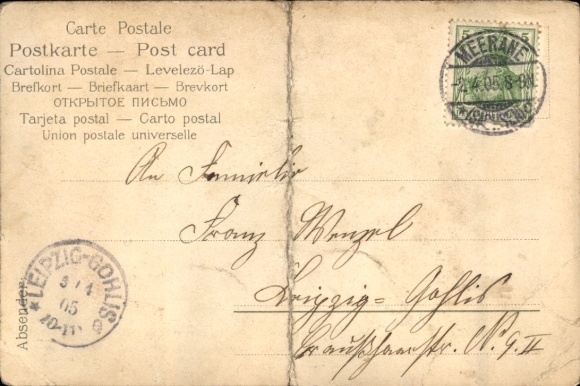 Carte Postale
Postkarte — Post card
Cartolina Postale — Levelező-Lap
Brefkort — Briefkaart — Brevkort
ОТКРЫТОЕ ПИСЬМО
Tarjeta postal — Carto postal
Union postale universelle
5 5
MEERANE
4.05. 8-9N.
An Familie
Franz Wenzel
Leipzig=Gohlis
N. 9. II
Absender
* LEIPZIG-GOHLIS
4
05